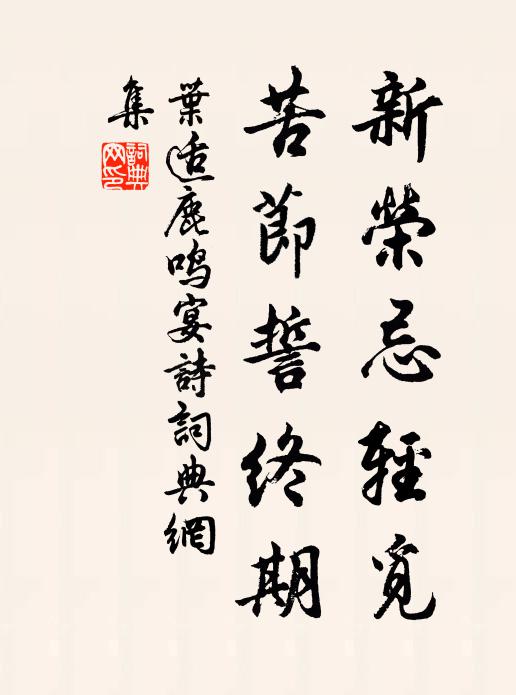 新榮忌輕覓
苦節誓終期
葉适鹿鳴宴詩詞典網
集
詞典網印